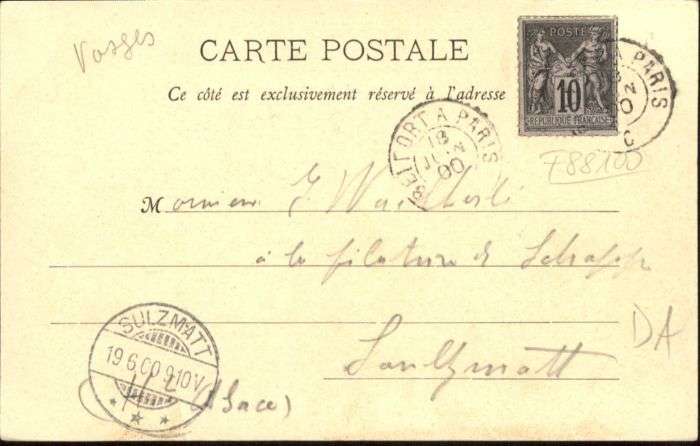 Vosges
CARTE POSTALE
Ce côté est exclusivement réservé à l'adresse
POSTE
10
REPUBLIQUE FRANÇAISE
A PARIS
BELFORT A PARIS
18
JUIN
00
F88100
Monsieur J
à la filature de Schappe
DA
Soultzmatt
(Alsace)
SULZMATT
19 6.00 9-10V